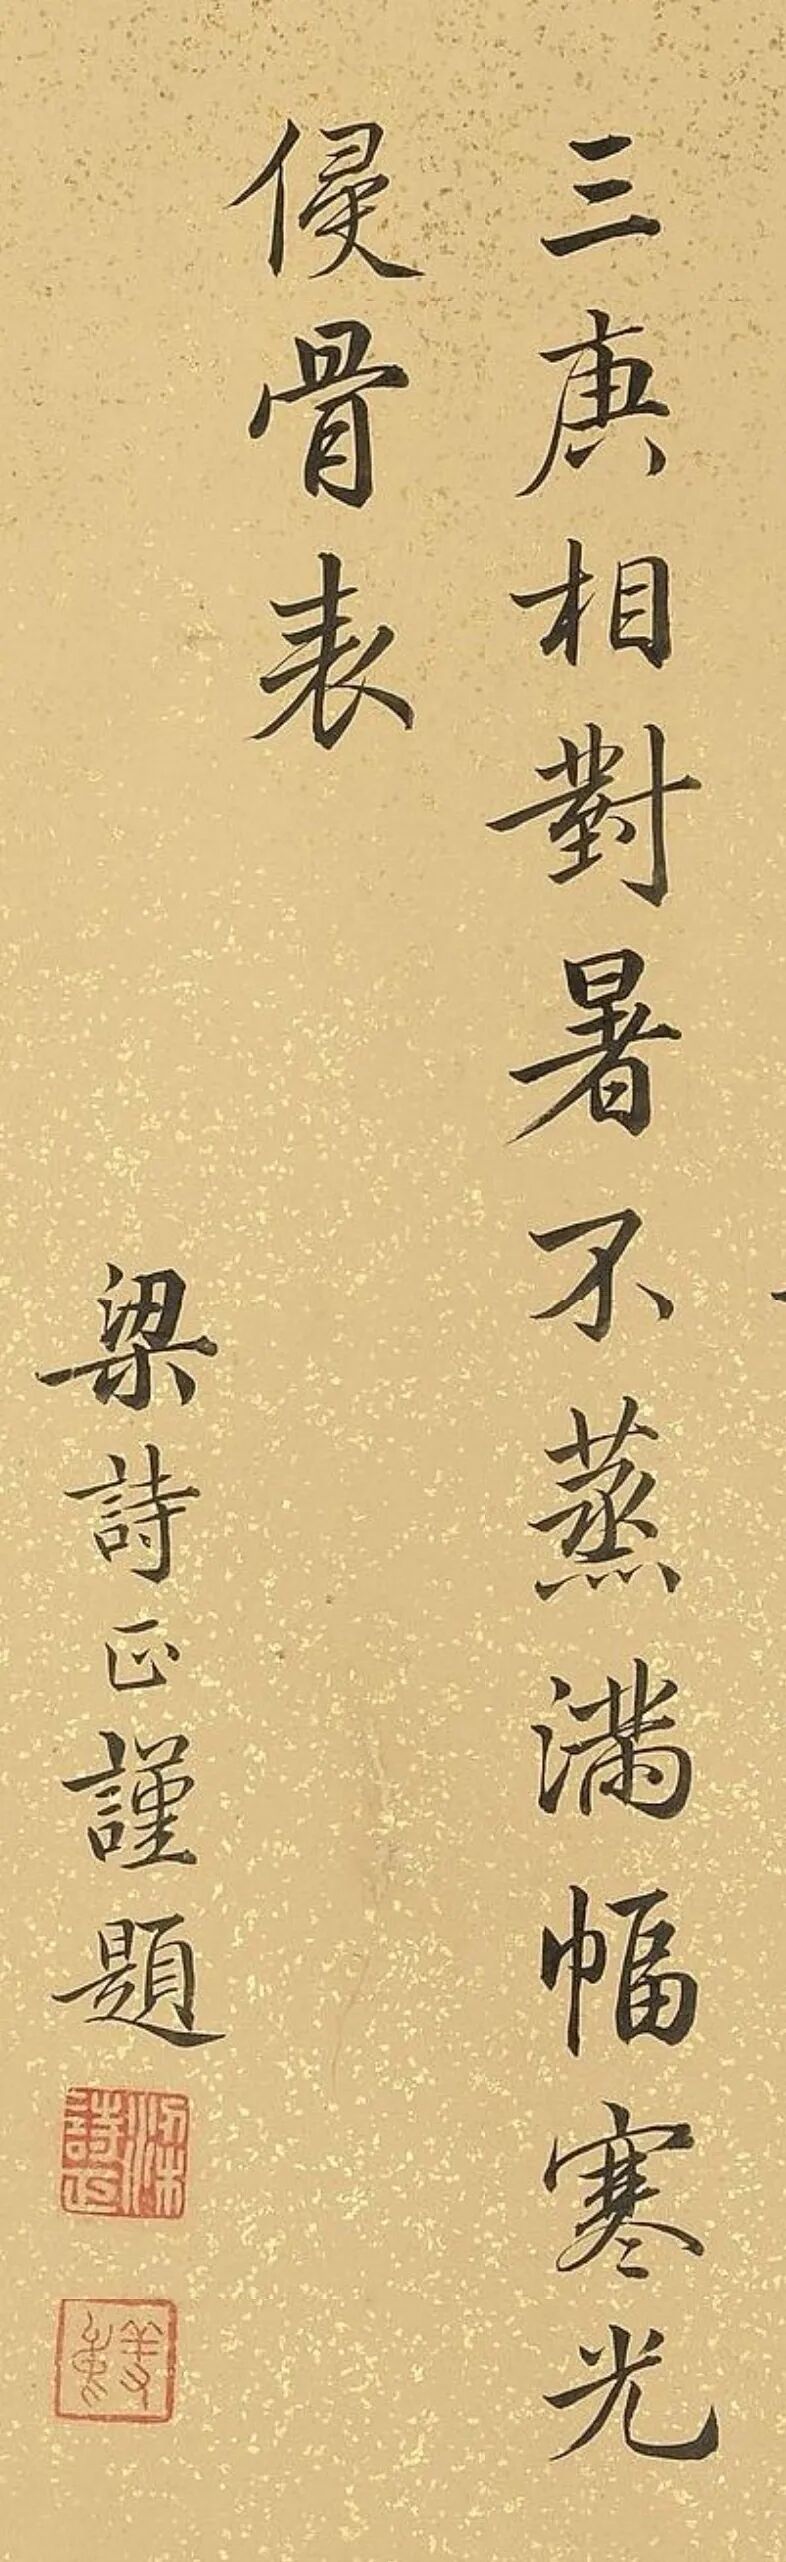 三庚相對暑不蒸滿幅寒光
侵骨表
梁詩正謹題
梁詩正